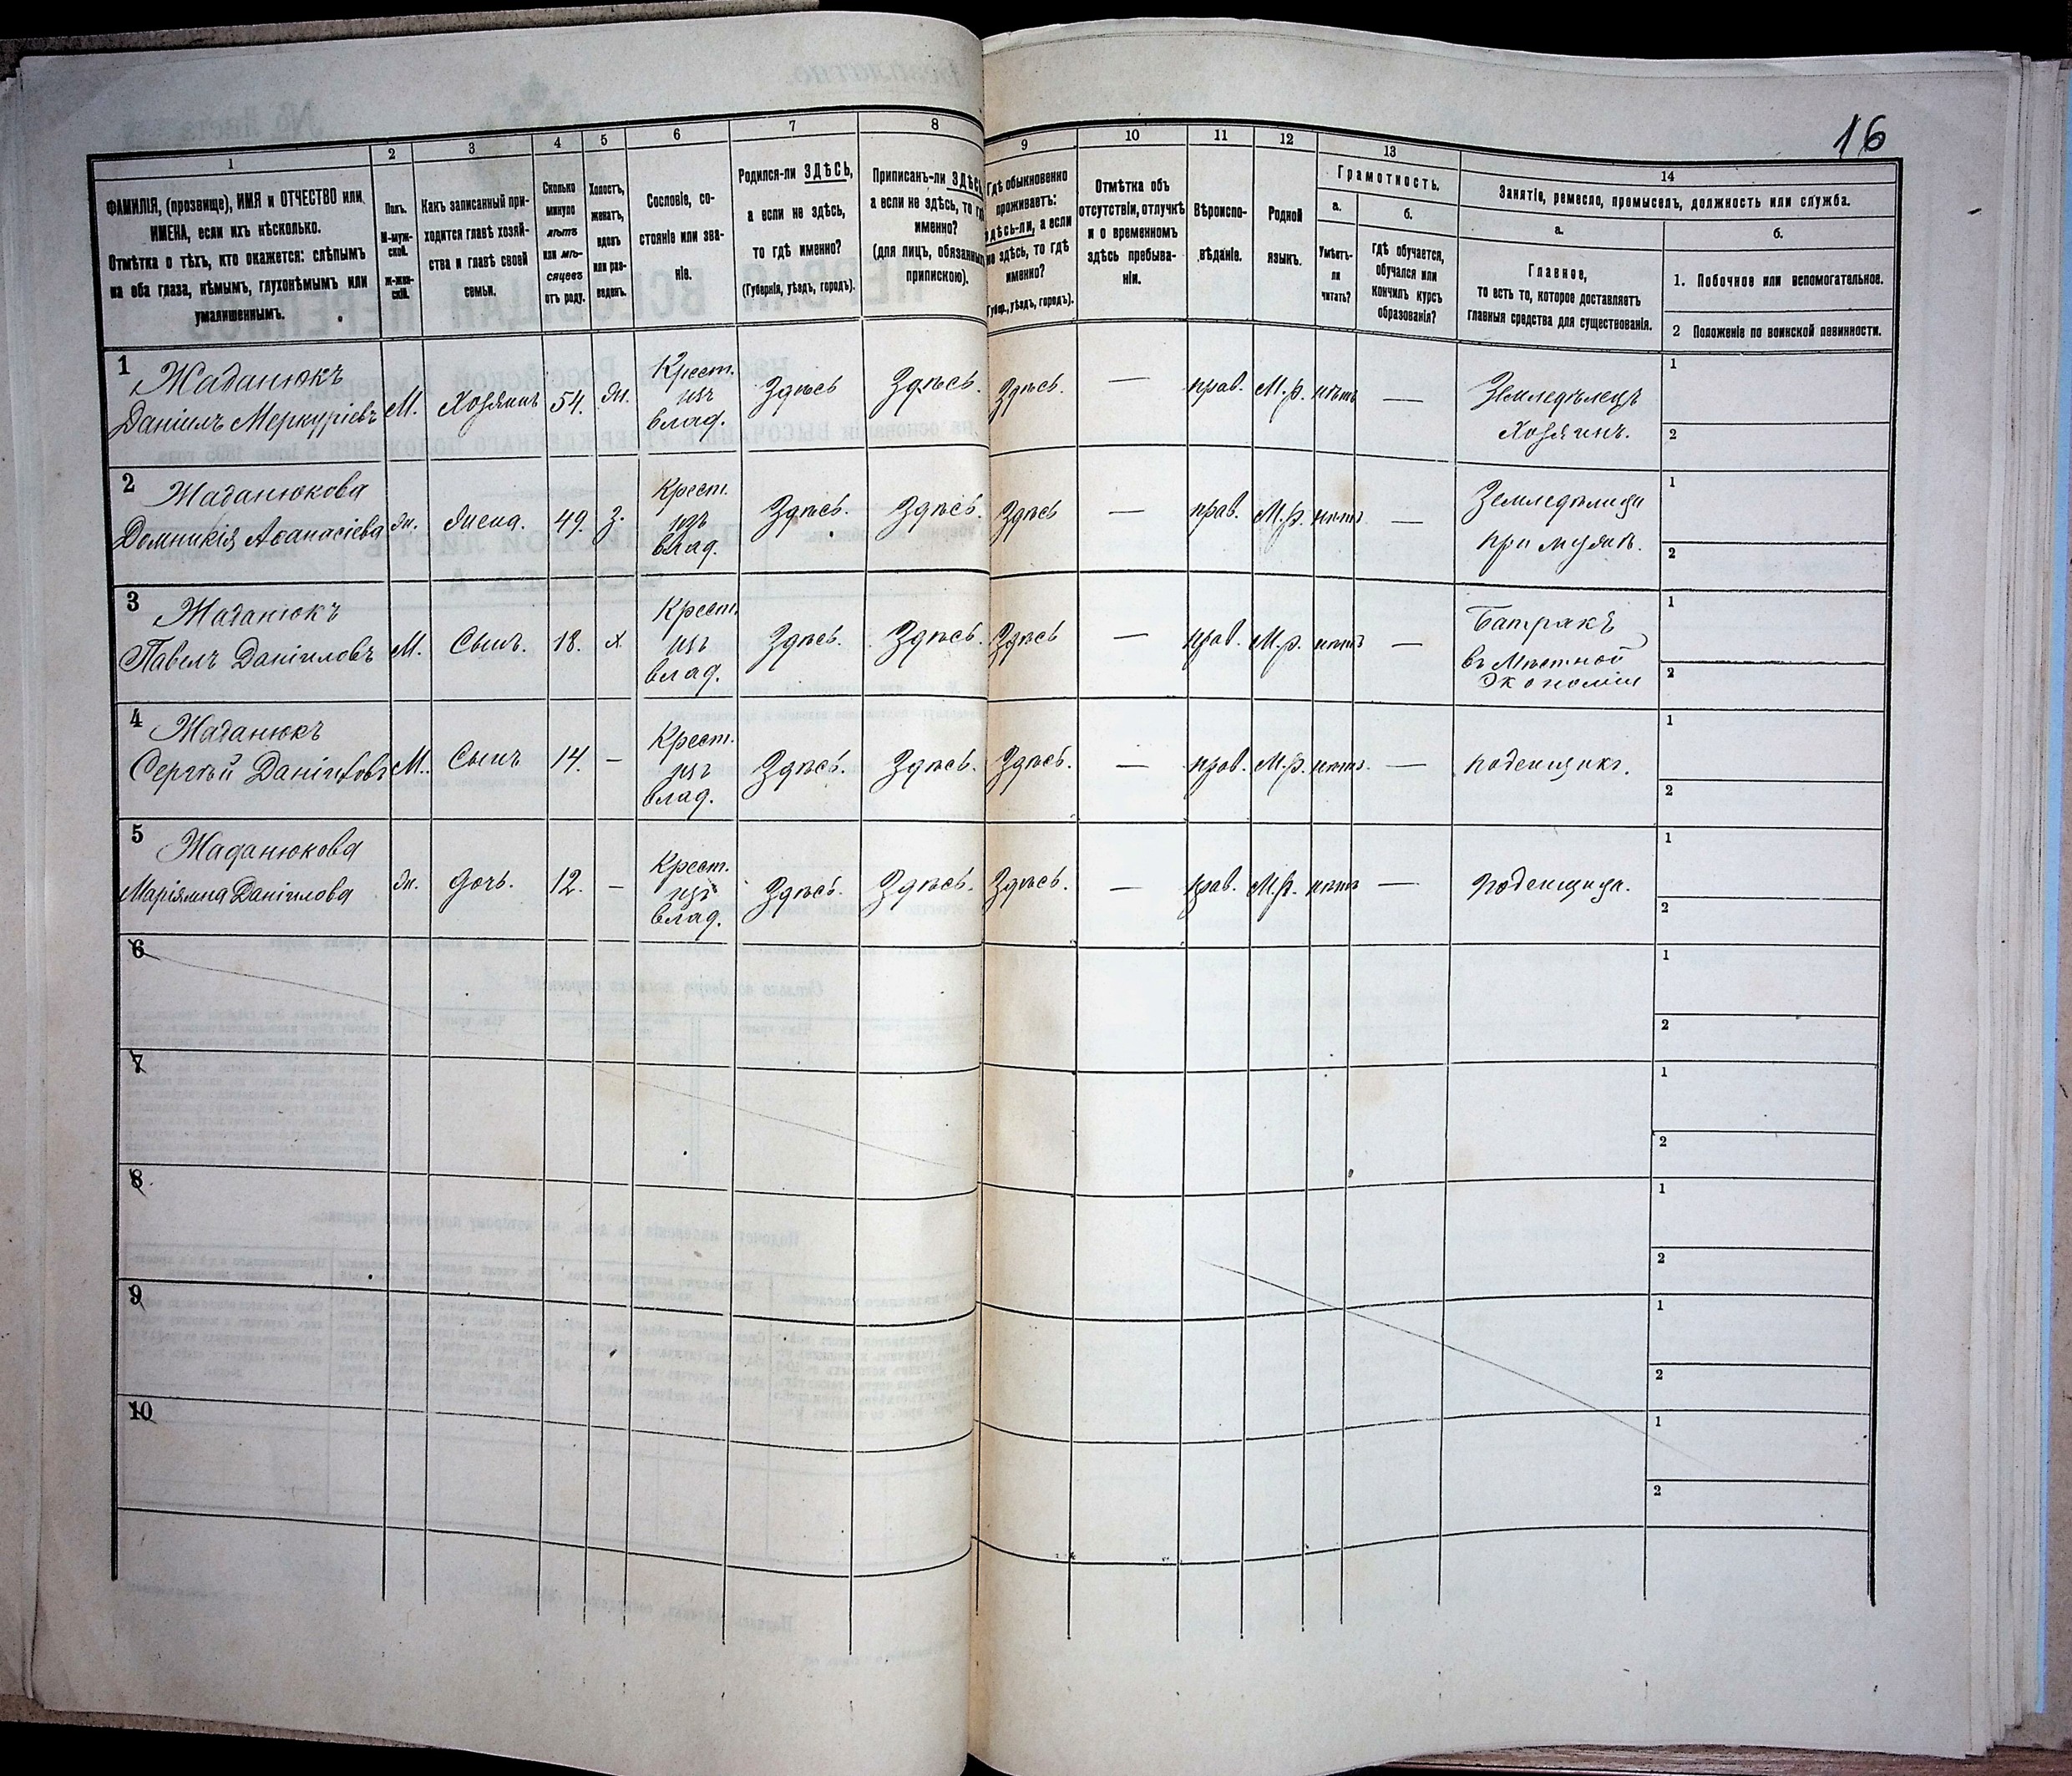 16
1
2
3
4
5
6
7
8
9
10
11
12
13
14
ФАМИЛІЯ, (прозвище), ИМЯ и ОТЧЕСТВО или
ИМЕНА, если ихъ нѣсколько.
Отмѣтка о тѣхъ, кто окажется: слѣпымъ
на оба глаза, нѣмымъ, глухонѣмымъ или
умалишеннымъ.
Полъ.
М-муж-
ской.
Ж-жен-
скій.
Какъ записанный при-
ходится главѣ хозяй-
ства и главѣ своей
семьи.
Сколько
минуло
лѣтъ
или мѣ-
сяцевъ
отъ роду.
Холостъ,
женатъ,
вдовъ
или раз-
веденъ.
Сословіе, со-
стояніе или зва-
ніе.
Родился-ли ЗДѢСЬ,
а если не здѣсь,
то гдѣ именно?
(Губернія, уѣздъ, городъ).
Приписанъ-ли ЗДѢСЬ,
а если не здѣсь, то гдѣ
именно?
(для лицъ, обязанныхъ
припискою).
Гдѣ обыкновенно
проживаетъ:
здѣсь-ли, а если
не здѣсь, то гдѣ
именно?
(Губер., уѣздъ, городъ).
Отмѣтка объ
отсутствіи, отлучкѣ
и о временномъ
здѣсь пребыва-
ніи.
Вѣроиспо-
вѣданіе.
Родной
языкъ.
Грамотность.
а.
б.
Умѣетъ-
ли
читать?
гдѣ обучается,
обучался или
кончилъ курсъ
образованія?
Занятіе, ремесло, промыселъ, должность или служба.
а.
б.
Главное,
то есть то, которое доставляетъ
главныя средства для существованія.
1. Побочное или вспомогательное.
2 Положеніе по воинской повинности.
1
Жаданюкъ
Даніилъ Меркуріевъ М. Хозяинъ 54. Ж. Крест. изъ влад. Здѣсь Здѣсь. Здѣсь. — прав. М.р. нѣтъ — Земледѣлецъ
Хозяинъ.
1
2
2
Жаданюкова
Домникія Аѳанасіева Ж. Жена. 49. З. Крест. изъ влад. Здѣсь. Здѣсь. Здѣсь — прав. М.р. нѣтъ —
при мужѣ.
1
2
3
Жаданюкъ
Павелъ Даніиловъ М. Сынъ. 18. Х. Крест. изъ влад. Здѣсь. Здѣсь. Здѣсь — прав. М.р. нѣтъ — Батракъ
въ Мѣстной
Экономіи
1
2
4
Жаданюкъ
Сергѣй Даніиловъ М. Сынъ 14. — Крест. изъ влад. Здѣсь. Здѣсь. Здѣсь. — прав. М.р. нѣтъ. — поденщикъ.
1
2
5
Жаданюкова
Маріямна Даніилова Ж. Дочь. 12. — Крест. изъ влад. Здѣсь. Здѣсь. Здѣсь. — прав. М.р. нѣтъ — поденщица.
1
2
6
1
2
7
1
2
8
1
2
9
1
2
10
1
2